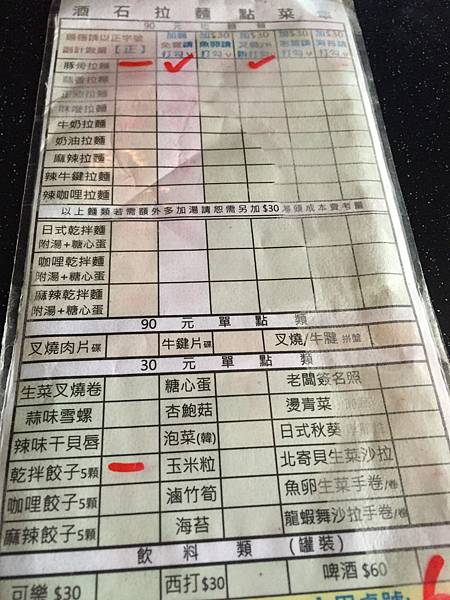 酒石拉麵點菜單
90元麵類
請以正字號 加麵 加$30 加$30 加$30 加$30
劃計數量【正】 免費請 魚卵請
打勾∨ 打勾∨ 打勾∨ 打勾∨ 打勾∨
豚骨拉麵 一 ✓ ✓
蒜香拉麵
味噌拉麵
牛奶拉麵
奶油拉麵
麻辣拉麵
辣牛腱拉麵
辣咖哩拉麵
以上麵類若需額外多加湯請恕需另加$30湯頭成本費考量
日式乾拌麵
附湯+糖心蛋
咖哩乾拌麵
附湯+糖心蛋
麻辣乾拌麵
附湯+糖心蛋
90元單點類
叉燒肉片碟 牛鍵片碟 叉燒/牛腱 拼盤
30元單點類
生菜叉燒卷 糖心蛋 老闆簽名照
蒜味雪螺 杏鮑菇 燙青菜
辣味干貝唇 泡菜(韓) 日式秋葵
乾拌餃子5顆 一 玉米粒 北寄貝生菜沙拉
咖哩餃子5顆 滷竹筍 魚卵生菜手卷/卷
麻辣餃子5顆 海苔 龍蝦舞沙拉手卷/卷
飲料類(罐裝)
可樂$30 西打$30 啤酒$60
桌號: